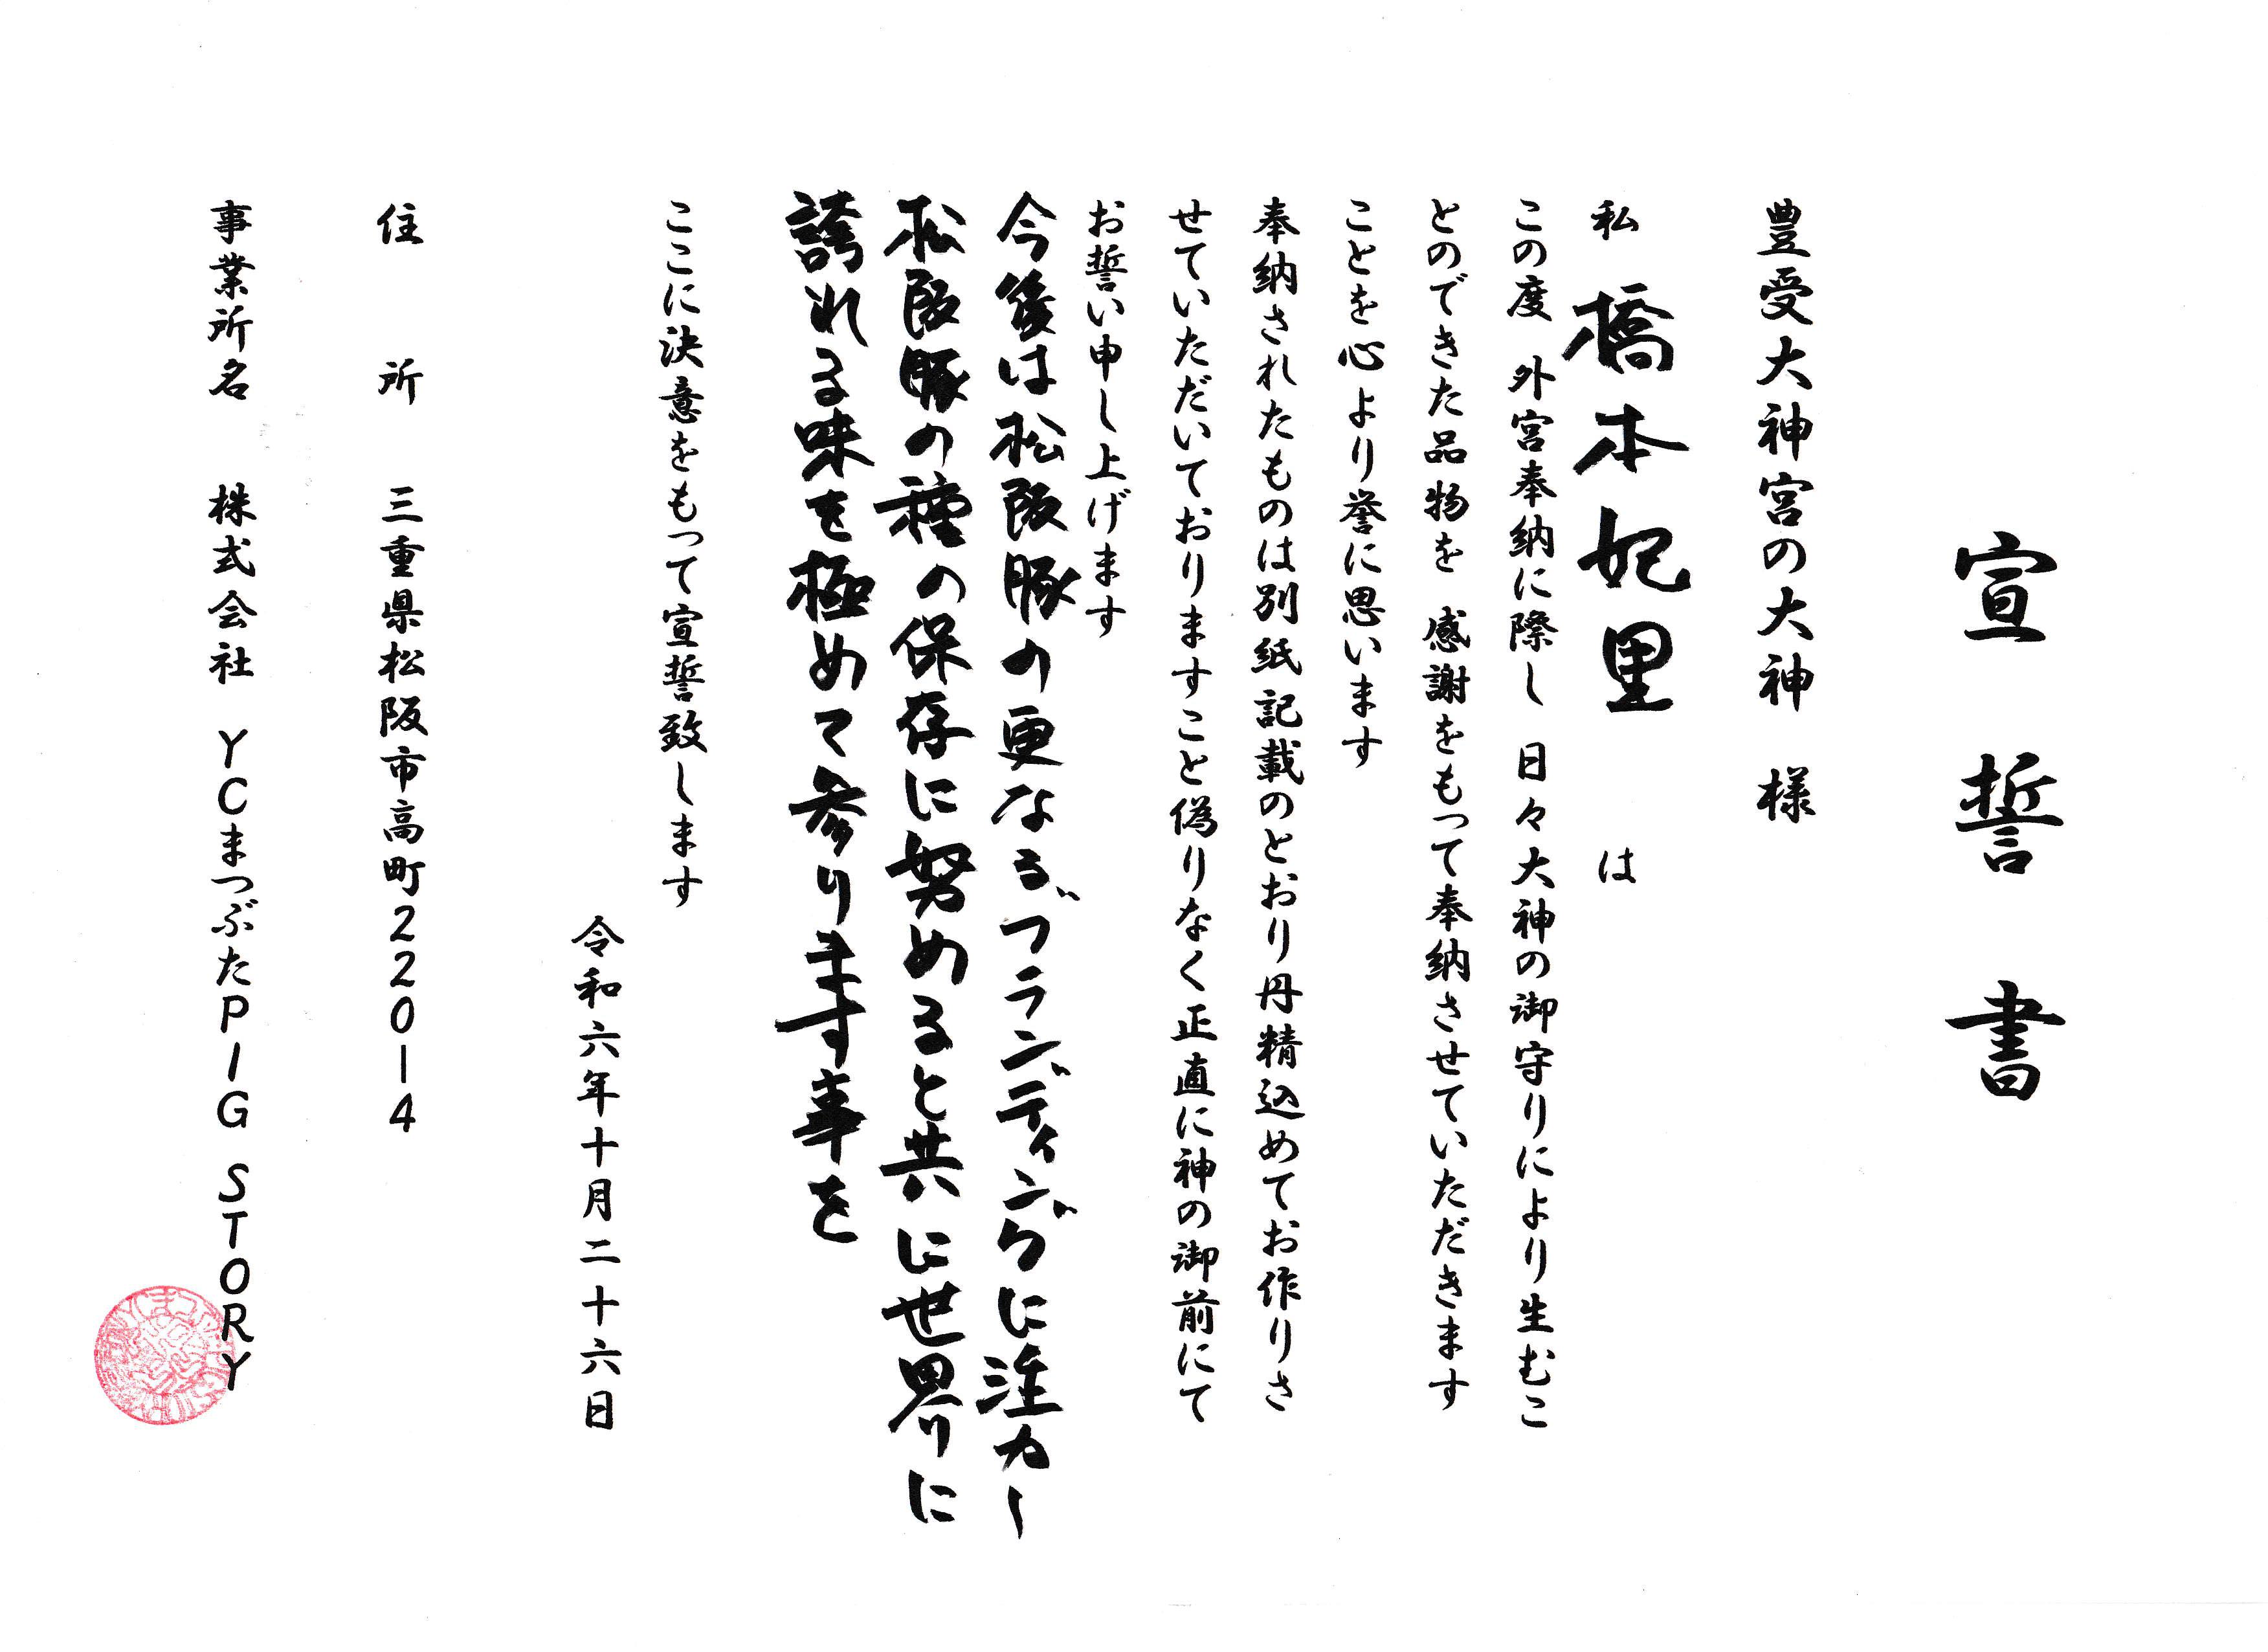 宣誓書
豊受大神宮の大神 様
私 橋本妃里 は
この度 外宮奉納に際し 日々大神の御守りにより生むこ
とのできた品物を 感謝をもって奉納させていただきます
ことを心より誉に思います
奉納されたものは別紙記載のとおり丹精込めてお作りさ
せていただいておりますこと偽りなく正直に神の御前にて
お誓い申し上げます
今後は松阪豚の更なるブランディングに注力し
松阪豚の種の保存に努めると共に世界に
誇れる味を極めて参ります事を
ここに決意をもって宣誓致します
令和六年十月二十六日
住所 三重県松阪市高町220-4
事業所名 株式会社 YCまつぶたPIG STORY